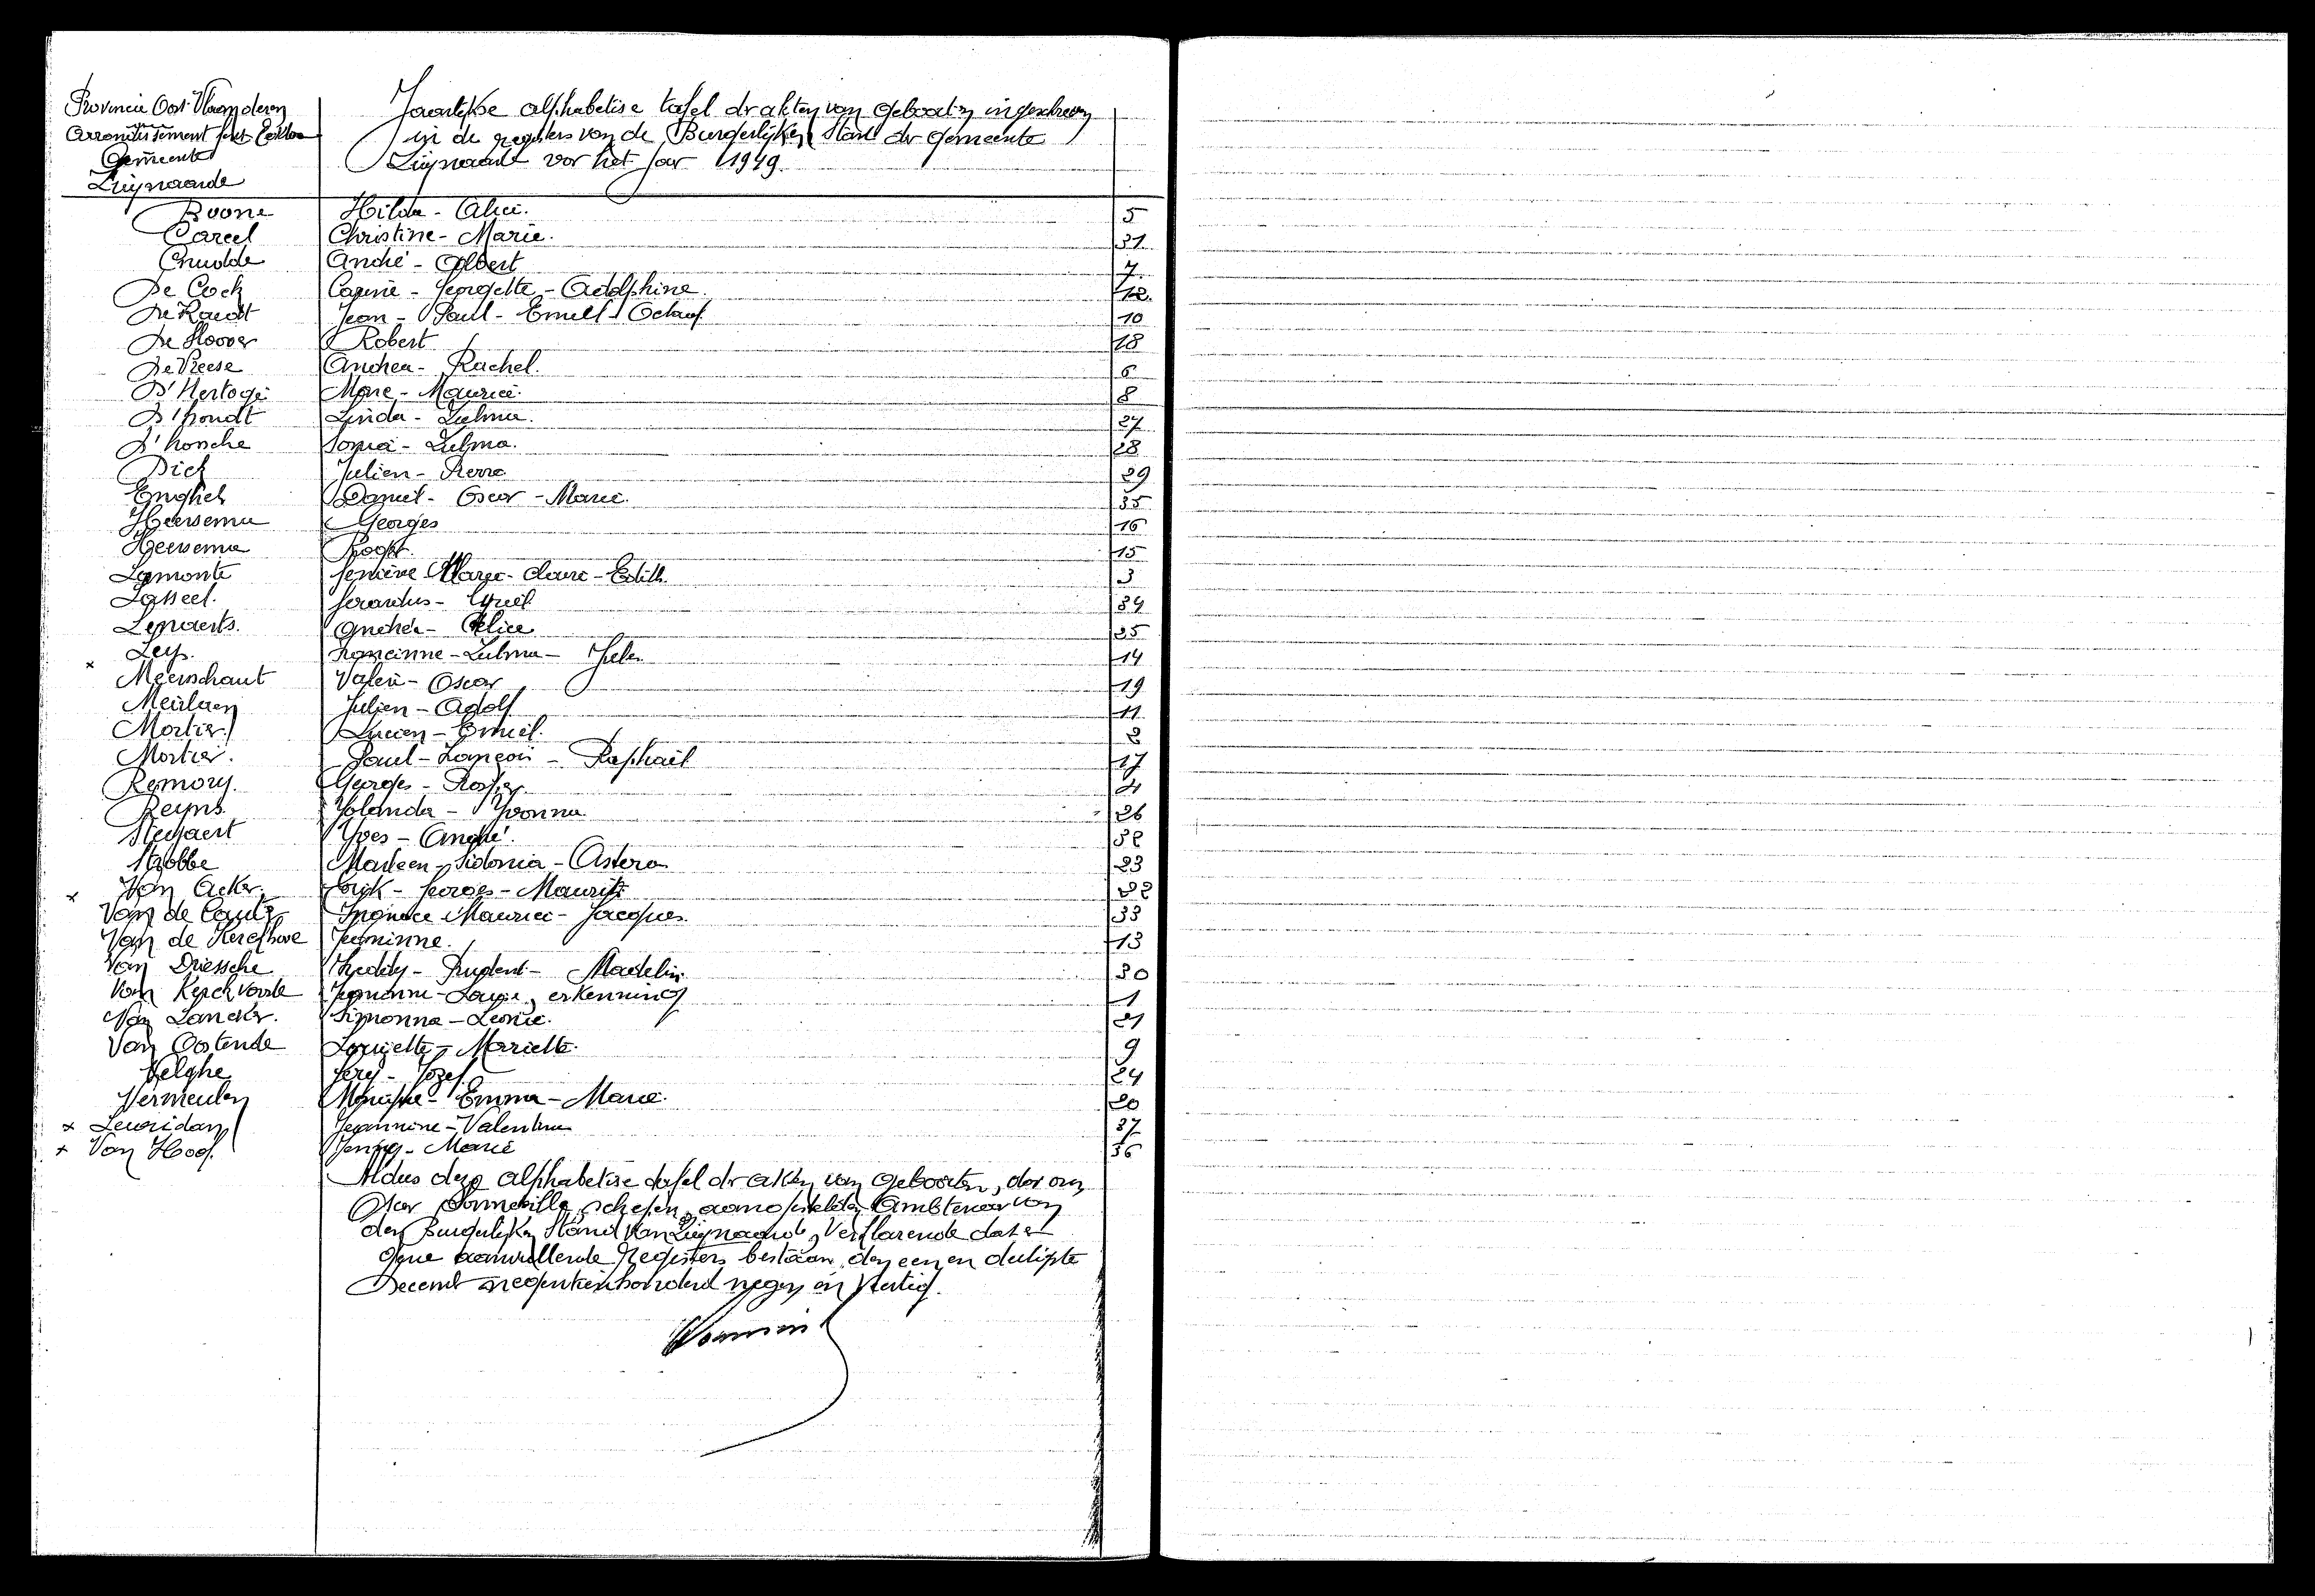 Provincie Oost-Vlaanderen
Arrondissement Gent-Eekloo
Gemeente
Zwijnaarde
Jaarlijkse alphabetise tafel dr akten van Geboorten ingeschreven
in de registers van de Burgerlijken Stand der Gemeente
Zwijnaarde voor het jaar 1949.
Boone Hilda - Alice. 5
Careel Christine - Marie. 31
André - Albert 7
De Cock Carine - Georgette - Adolphine 12
De Raedt Jean - Paul - Emiel - Octaaf 10
De Hoover Robert 18
De Vreese Andrea - Rachel. 6
D'Hertoge Marc - Maurice. 8
D'hondt Linda - Zulma. 27
D'hossche Sonia - Zulma. 28
Dick Julien - Pierre 29
Enghels Daniel - Oscar - Marie. 35
Heersema Georges 16
Heersema Roger 15
Lamonte Marie - Claire - Edith. 3
Lasseel. Gerardus - Cyriel 34
Lenaerts. Andréa - Alice 25
x Leys. Francinne - Zulma - 14
Meerschaut Valère - Oscar 19
Meirlaen Julien - Adolf 11
Mortier Lucien - Emiel. 2
Mortier. Paul - François - Raphaël 17
Remory. Georges - 4
Reyns. Yolanda - Yvonna 26
Steyaert Yves - André. 32
Strobbe Marleen - Sidonia - Astera 23
x Van Acker. Erik - Georges - Maurits 22
Van de Ignace Maurice - Jacques. 33
Van de Kerckhove Jeaninne. 13
Van Driessche Freddy - Prudent - Madelin. 30
Van Kerckvoorde Jeaninne - Louise, erkenning 1
Van Lancker. Simonna - Leonie. 21
Van Oostende Louisette - Mariette. 9
Velghe Gery - Jozef 24
Vermeulen Monique - Emma - Marie. 20
x Leuridan Jeannine - Valentina 37
x Van Hoof. Jenny - Marie 36
Aldus deze alphabetise tafel dr akten van Geboorten, door ons,
Oscar Sonneville, schepen, aangestelde Ambtenaar van
den Burgerlijken Stand van Zwijnaarde, Verklarende dat er
gene aanvullende Registers bestaan, den een en dertigste
December negentienhonderd negen en Veertig.